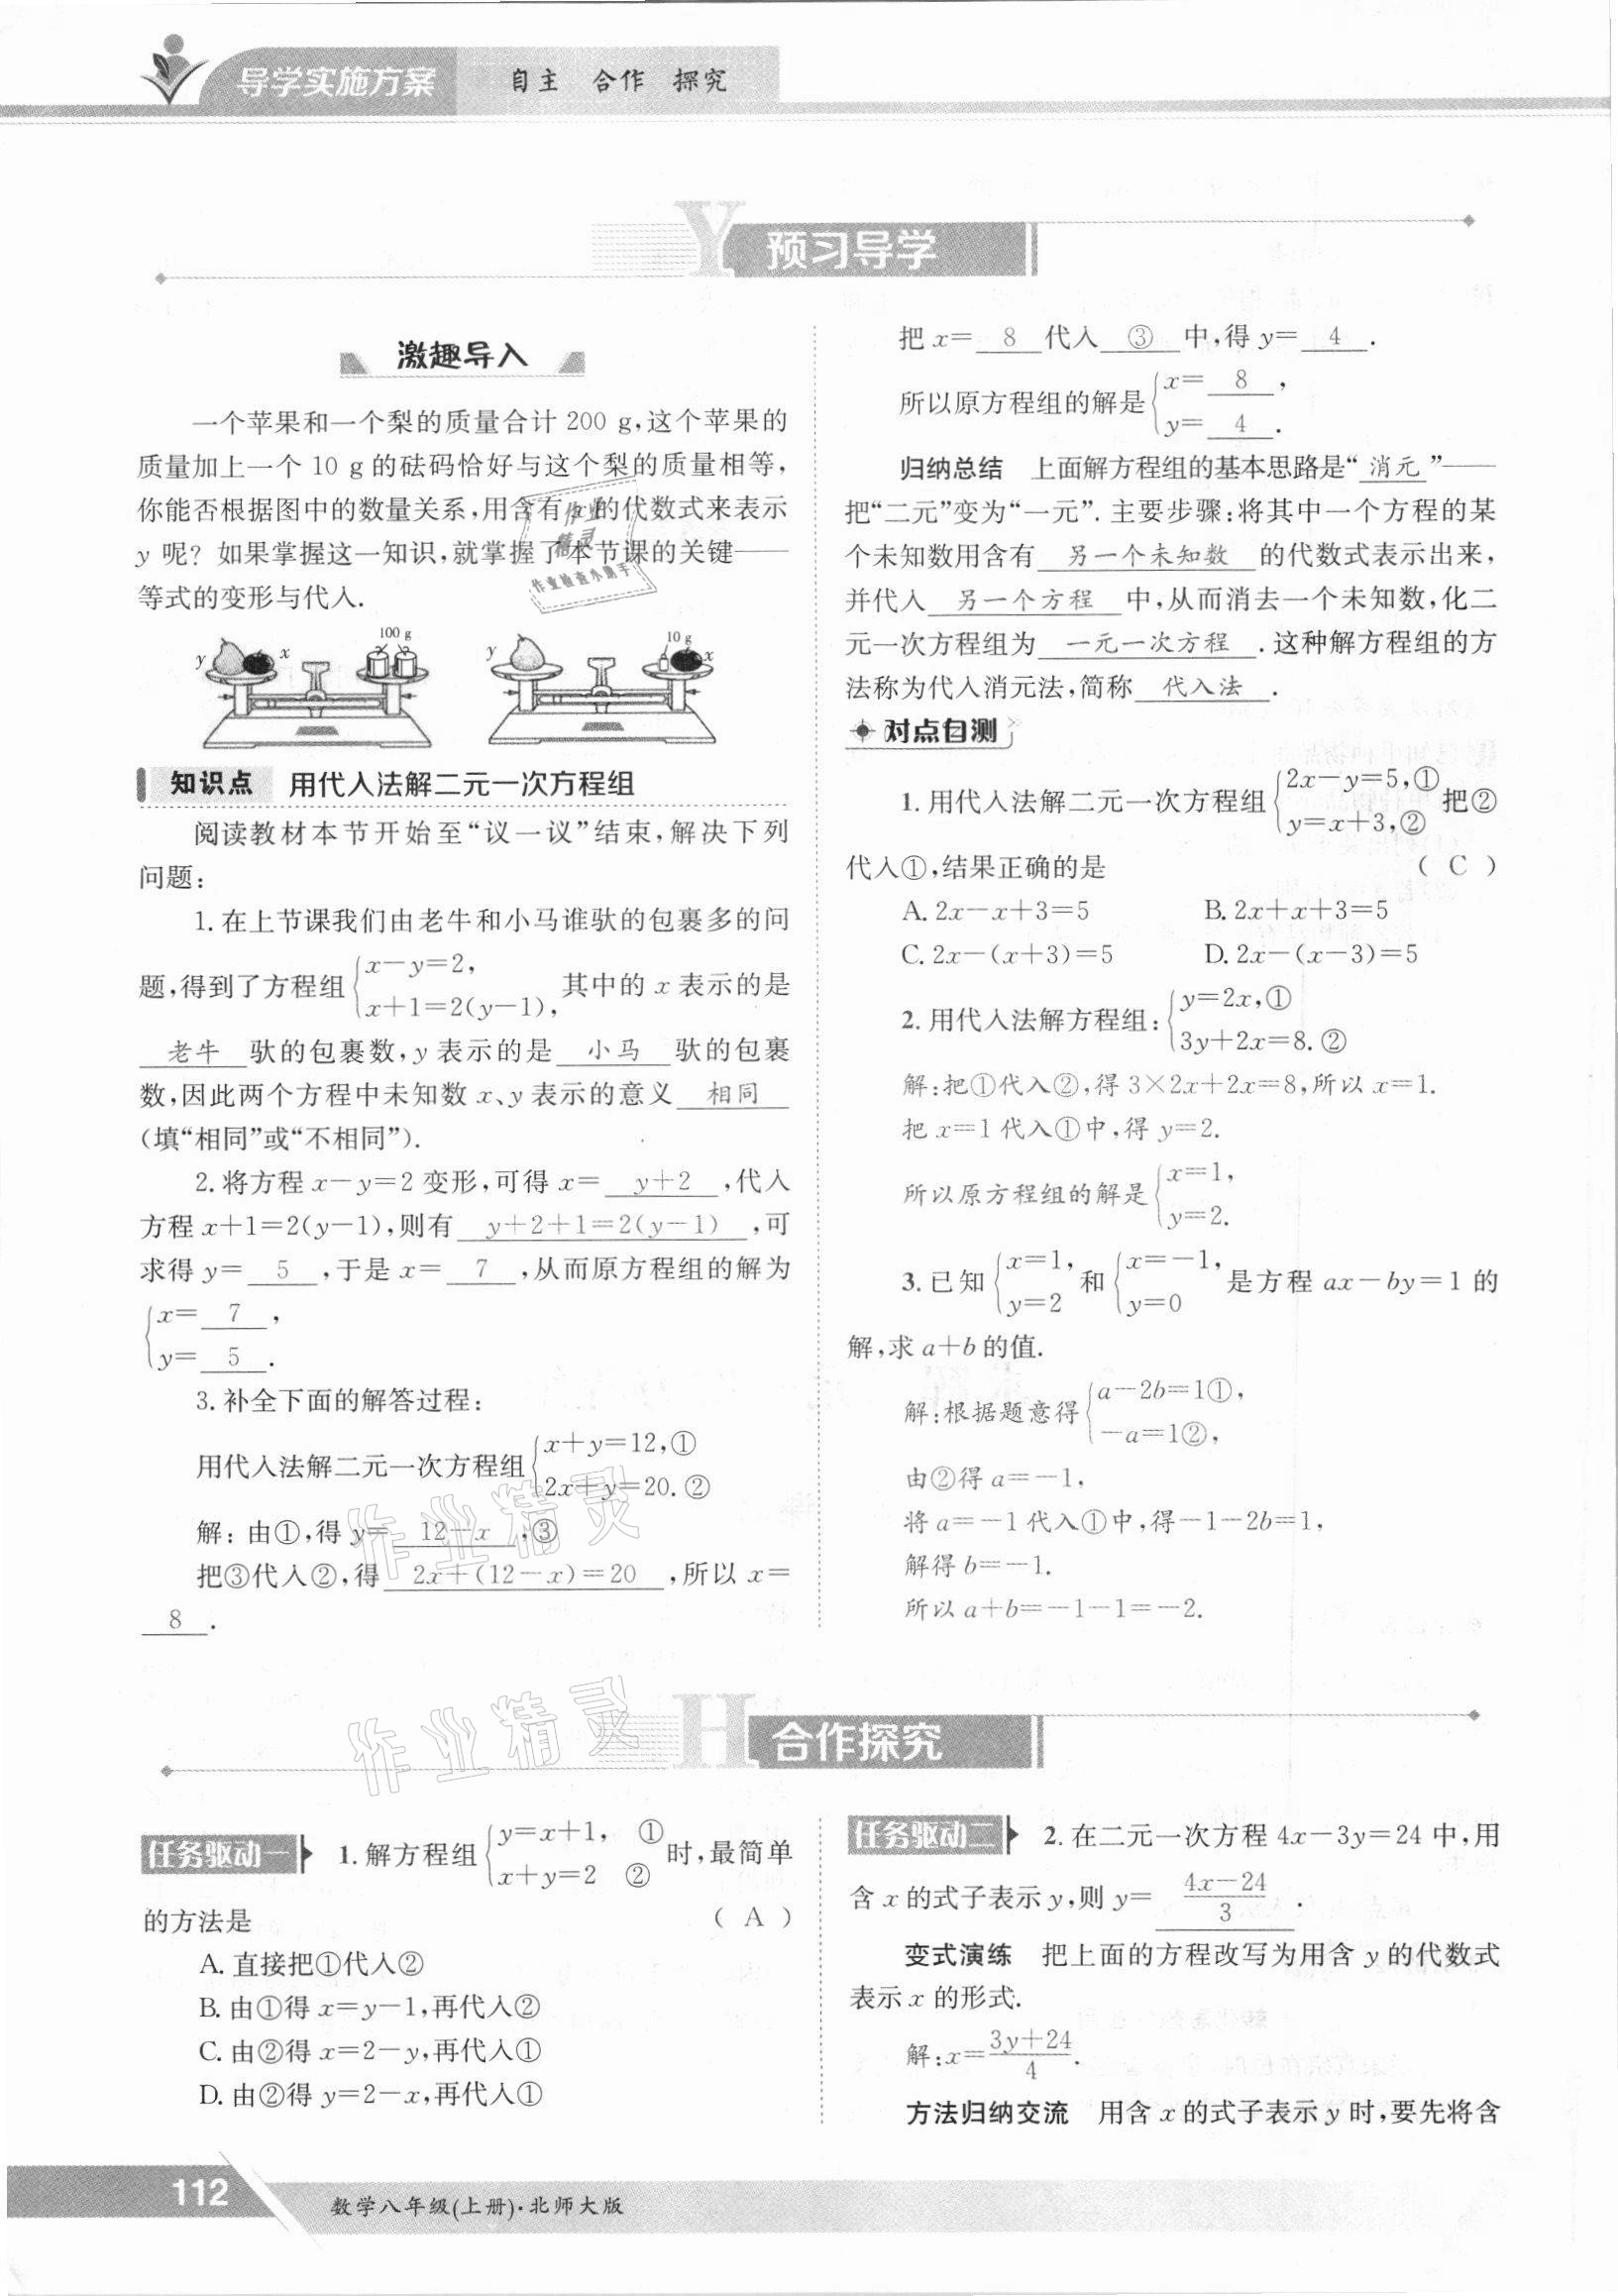 导学实施方案 自主 合作 探究
Y 预习导学
激趣导入
一个苹果和一个梨的质量合计 200 g,这个苹果的
质量加上一个 10 g 的砝码恰好与这个梨的质量相等,
你能否根据图中的数量关系,用含有 x 的代数式来表示
y 呢? 如果掌握这一知识,就掌握了本节课的关键——
等式的变形与代入.
y x 100 g y 10 g x
知识点 用代入法解二元一次方程组
阅读教材本节开始至“议一议”结束,解决下列
问题:
1. 在上节课我们由老牛和小马谁驮的包裹多的问
题,得到了方程组 { x-y=2, x+1=2(y-1), 其中的 x 表示的是
老牛 驮的包裹数,y 表示的是 小马 驮的包裹
数,因此两个方程中未知数 x、y 表示的意义 相同
(填“相同”或“不相同”).
2. 将方程 x-y=2 变形,可得 x= y+2 ,代入
方程 x+1=2(y-1),则有 y+2+1=2(y-1) ,可
求得 y= 5 ,于是 x= 7 ,从而原方程组的解为
{ x= 7 ,
y= 5 .
3. 补全下面的解答过程:
用代入法解二元一次方程组 { x+y=12,① 2x+y=20. ②
解: 由①,得 y= 12-x ,③
把③代入②,得 2x+(12-x)=20 ,所以 x=
8 .
把 x= 8 代入 ③ 中,得 y= 4 .
所以原方程组的解是 { x= 8 , y= 4 .
归纳总结 上面解方程组的基本思路是“ 消元 ”——
把“二元”变为“一元”. 主要步骤:将其中一个方程的某
个未知数用含有 另一个未知数 的代数式表示出来,
并代入 另一个方程 中,从而消去一个未知数,化二
元一次方程组为 一元一次方程 . 这种解方程组的方
法称为代入消元法,简称 代入法 .
对点自测
1. 用代入法解二元一次方程组 { 2x-y=5,① y=x+3,② 把②
代入①,结果正确的是 ( C )
A. 2x-x+3=5 B. 2x+x+3=5
C. 2x-(x+3)=5 D. 2x-(x-3)=5
2. 用代入法解方程组: { y=2x,① 3y+2x=8. ②
解:把①代入②,得 3×2x+2x=8,所以 x=1.
把 x=1 代入①中,得 y=2.
所以原方程组的解是 { x=1, y=2.
3. 已知 { x=1, y=2 和 { x=-1, y=0 是方程 ax-by=1 的
解,求 a+b 的值.
解:根据题意得 { a-2b=1①, -a=1②,
由②得 a=-1,
将 a=-1 代入①中,得-1-2b=1,
解得 b=-1.
所以 a+b=-1-1=-2.
作业精灵
作业检查小助手
作业精灵
作业精灵
H 合作探究
任务驱动一 1. 解方程组 { y=x+1, ① x+y=2 ② 时,最简单
的方法是 ( A )
A. 直接把①代入②
B. 由①得 x=y-1,再代入②
C. 由②得 x=2-y,再代入①
D. 由②得 y=2-x,再代入①
任务驱动二 2. 在二元一次方程 4x-3y=24 中,用
含 x 的式子表示 y,则 y= (4x-24)/3 .
变式演练 把上面的方程改写为用含 y 的代数式
表示 x 的形式.
解:x=(3y+24)/4.
方法归纳交流 用含 x 的式子表示 y 时,要先将含
112 数学八年级(上册)·北师大版